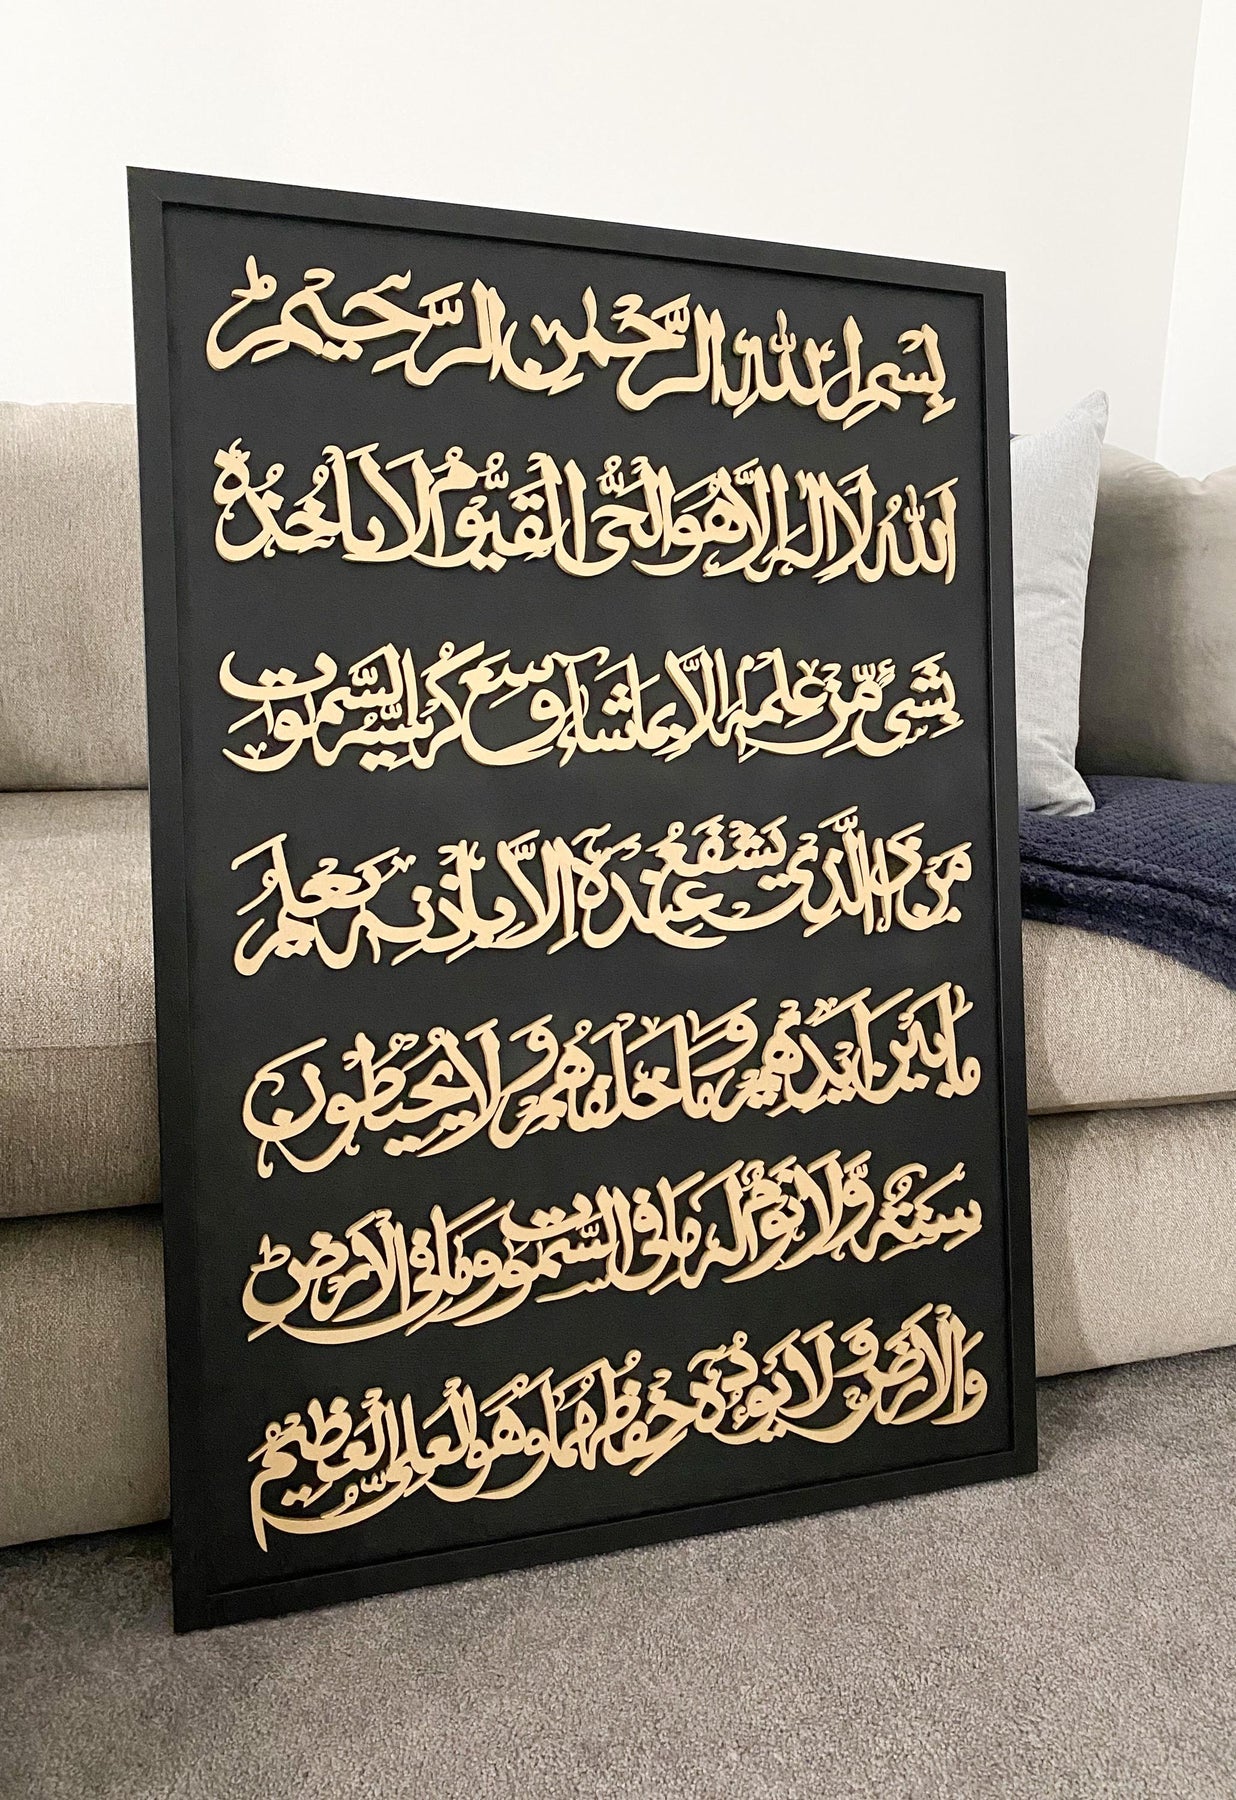 بِسْمِ اللهِ الرَّحْمٰنِ الرَّحِيْمِ
اَللهُ لَا اِلٰهَ اِلَّا هُوَ الْحَىُّ الْقَيُّوْمُ لَا تَاْخُذُهٗ
بِشَىْءٍ مِّنْ عِلْمِهٖ اِلَّا بِمَا شَآءَ وَسِعَ كُرْسِيُّهُ السَّمٰوٰتِ
مَنْ ذَا الَّذِىْ يَشْفَعُ عِنْدَهٗ اِلَّا بِاِذْنِهٖ يَعْلَمُ
مَا بَيْنَ اَيْدِيْهِمْ وَمَا خَلْفَهُمْ وَلَا يُحِيْطُوْنَ
سِنَةٌ وَّلَا نَوْمٌ لَهٗ مَا فِى السَّمٰوٰتِ وَمَا فِى الْاَرْضِ
وَالْاَرْضَ وَلَا يَئُوْدُهٗ حِفْظُهُمَا وَهُوَ الْعَلِىُّ الْعَظِيْمُ